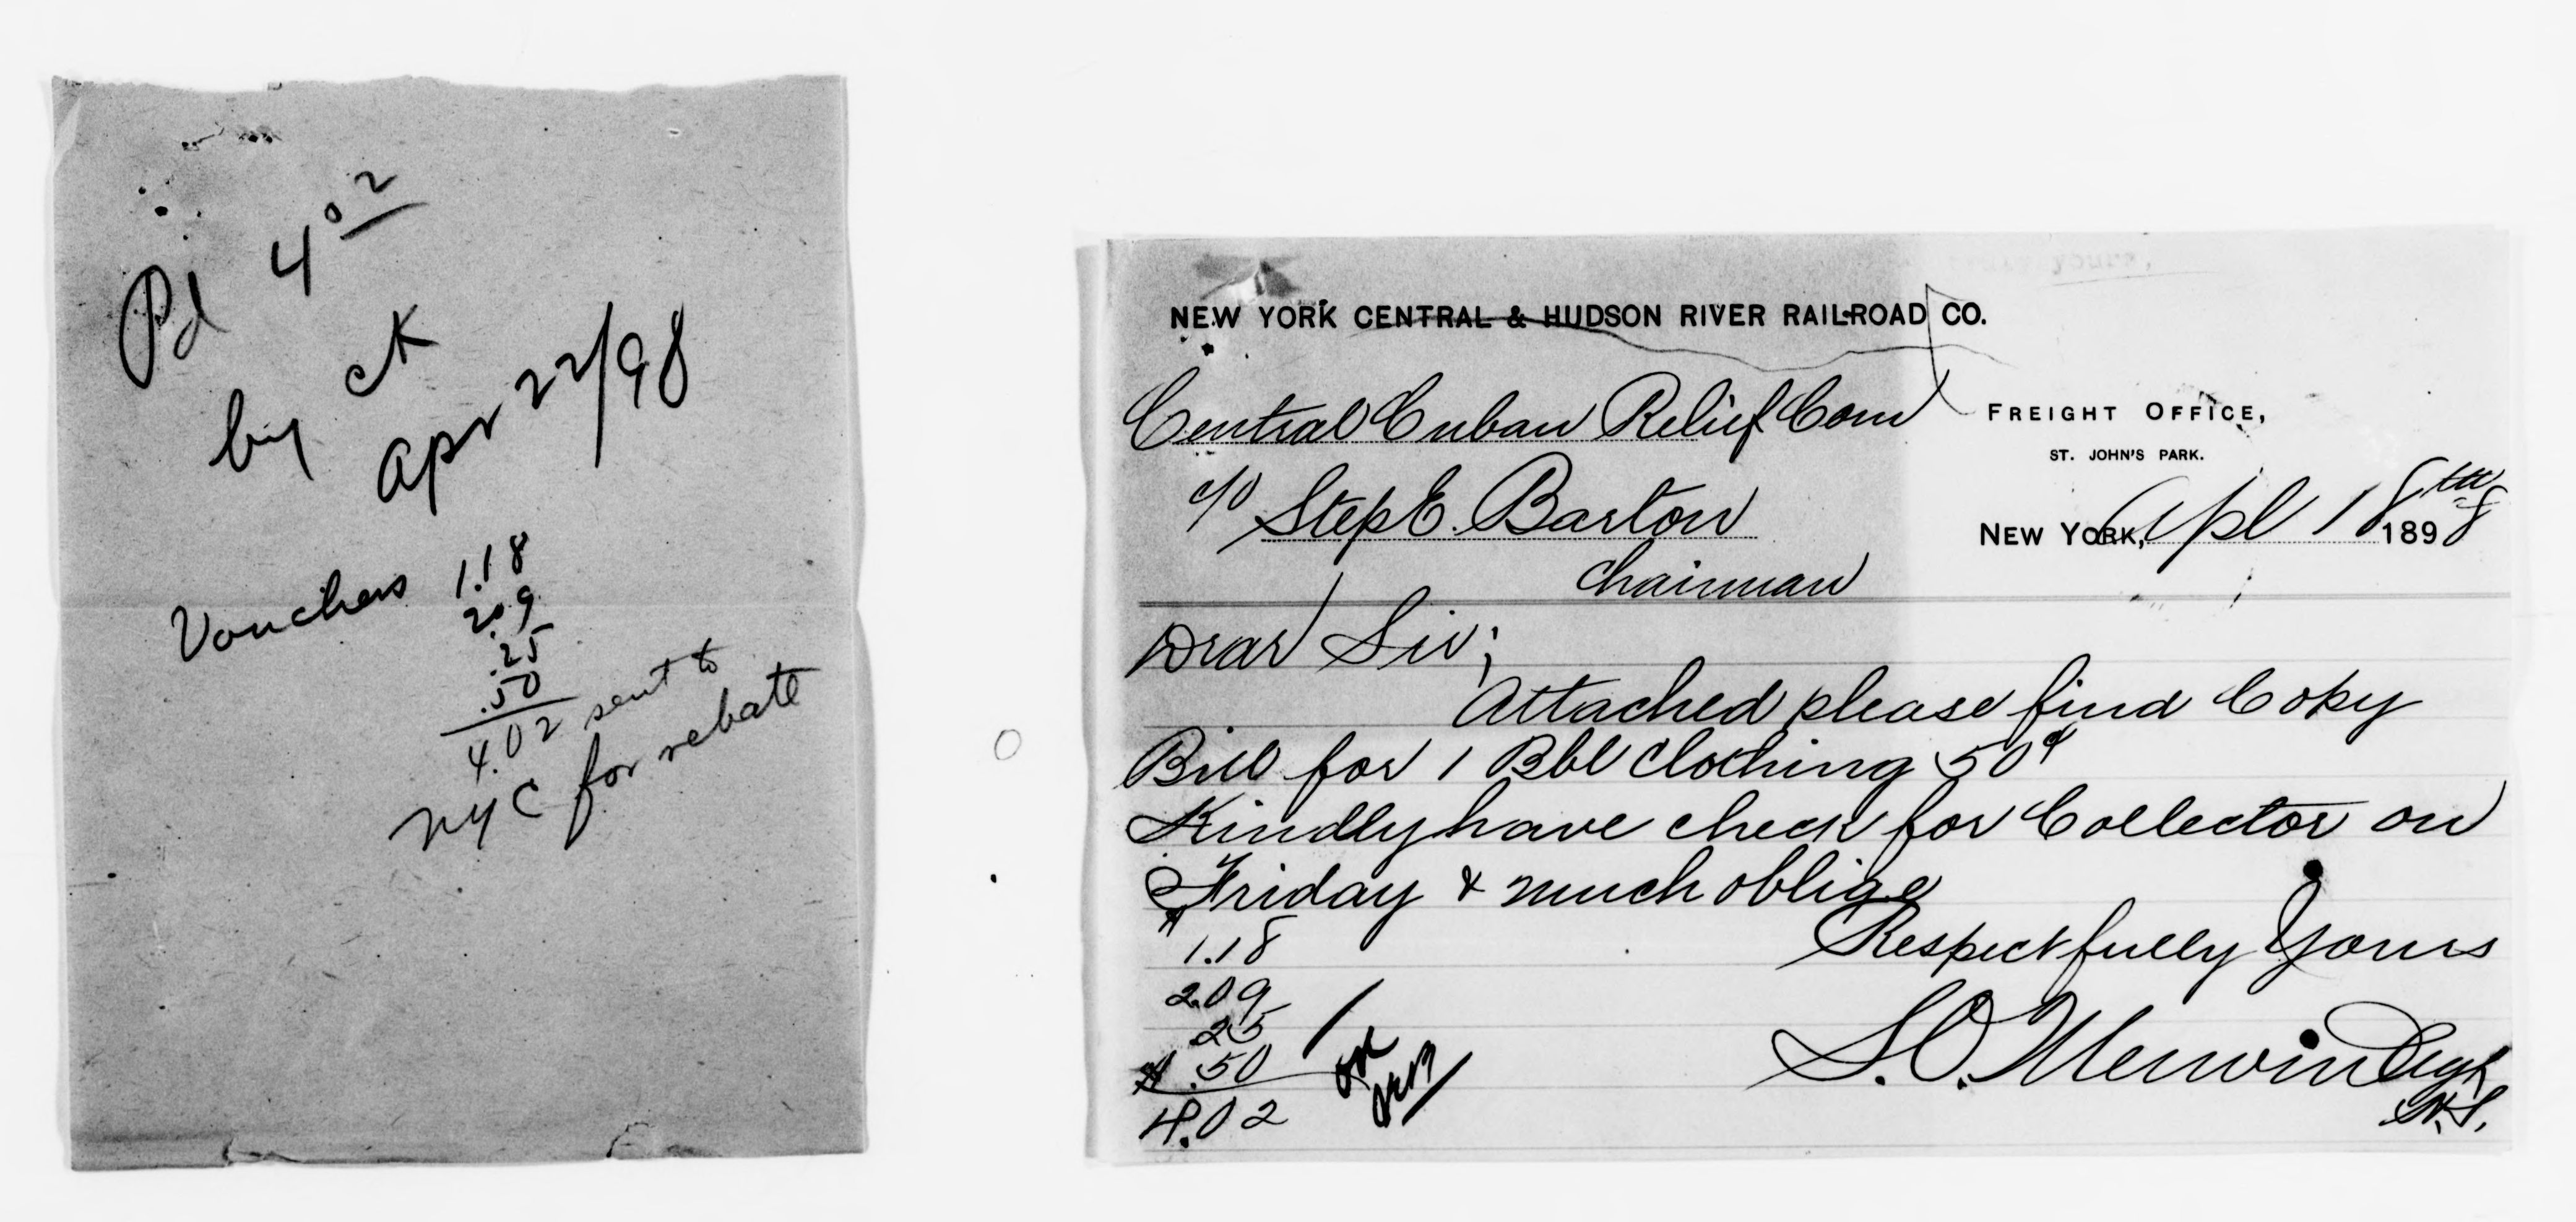 Pd 4 02
by ck
Apr 22/98
Vouchers 1.18
2.09
.25
.50
4.02 sent to
NYC for rebate
NEW YORK CENTRAL & HUDSON RIVER RAILROAD CO.
Central Cuban Relief Com
FREIGHT OFFICE,
ST. JOHN'S PARK.
c/o Step E. Barton
NEW YORK, Apl 18th 1898
Chairman
Dear Sir;
Attached please find Copy
Bill for 1 Bbl Clothing 50¢
Kindly have check for Collector on
Friday & much oblige
Respectfully Yours
1.18
2.09
25
.50
4.02
OK
S. O. Merwin Agt